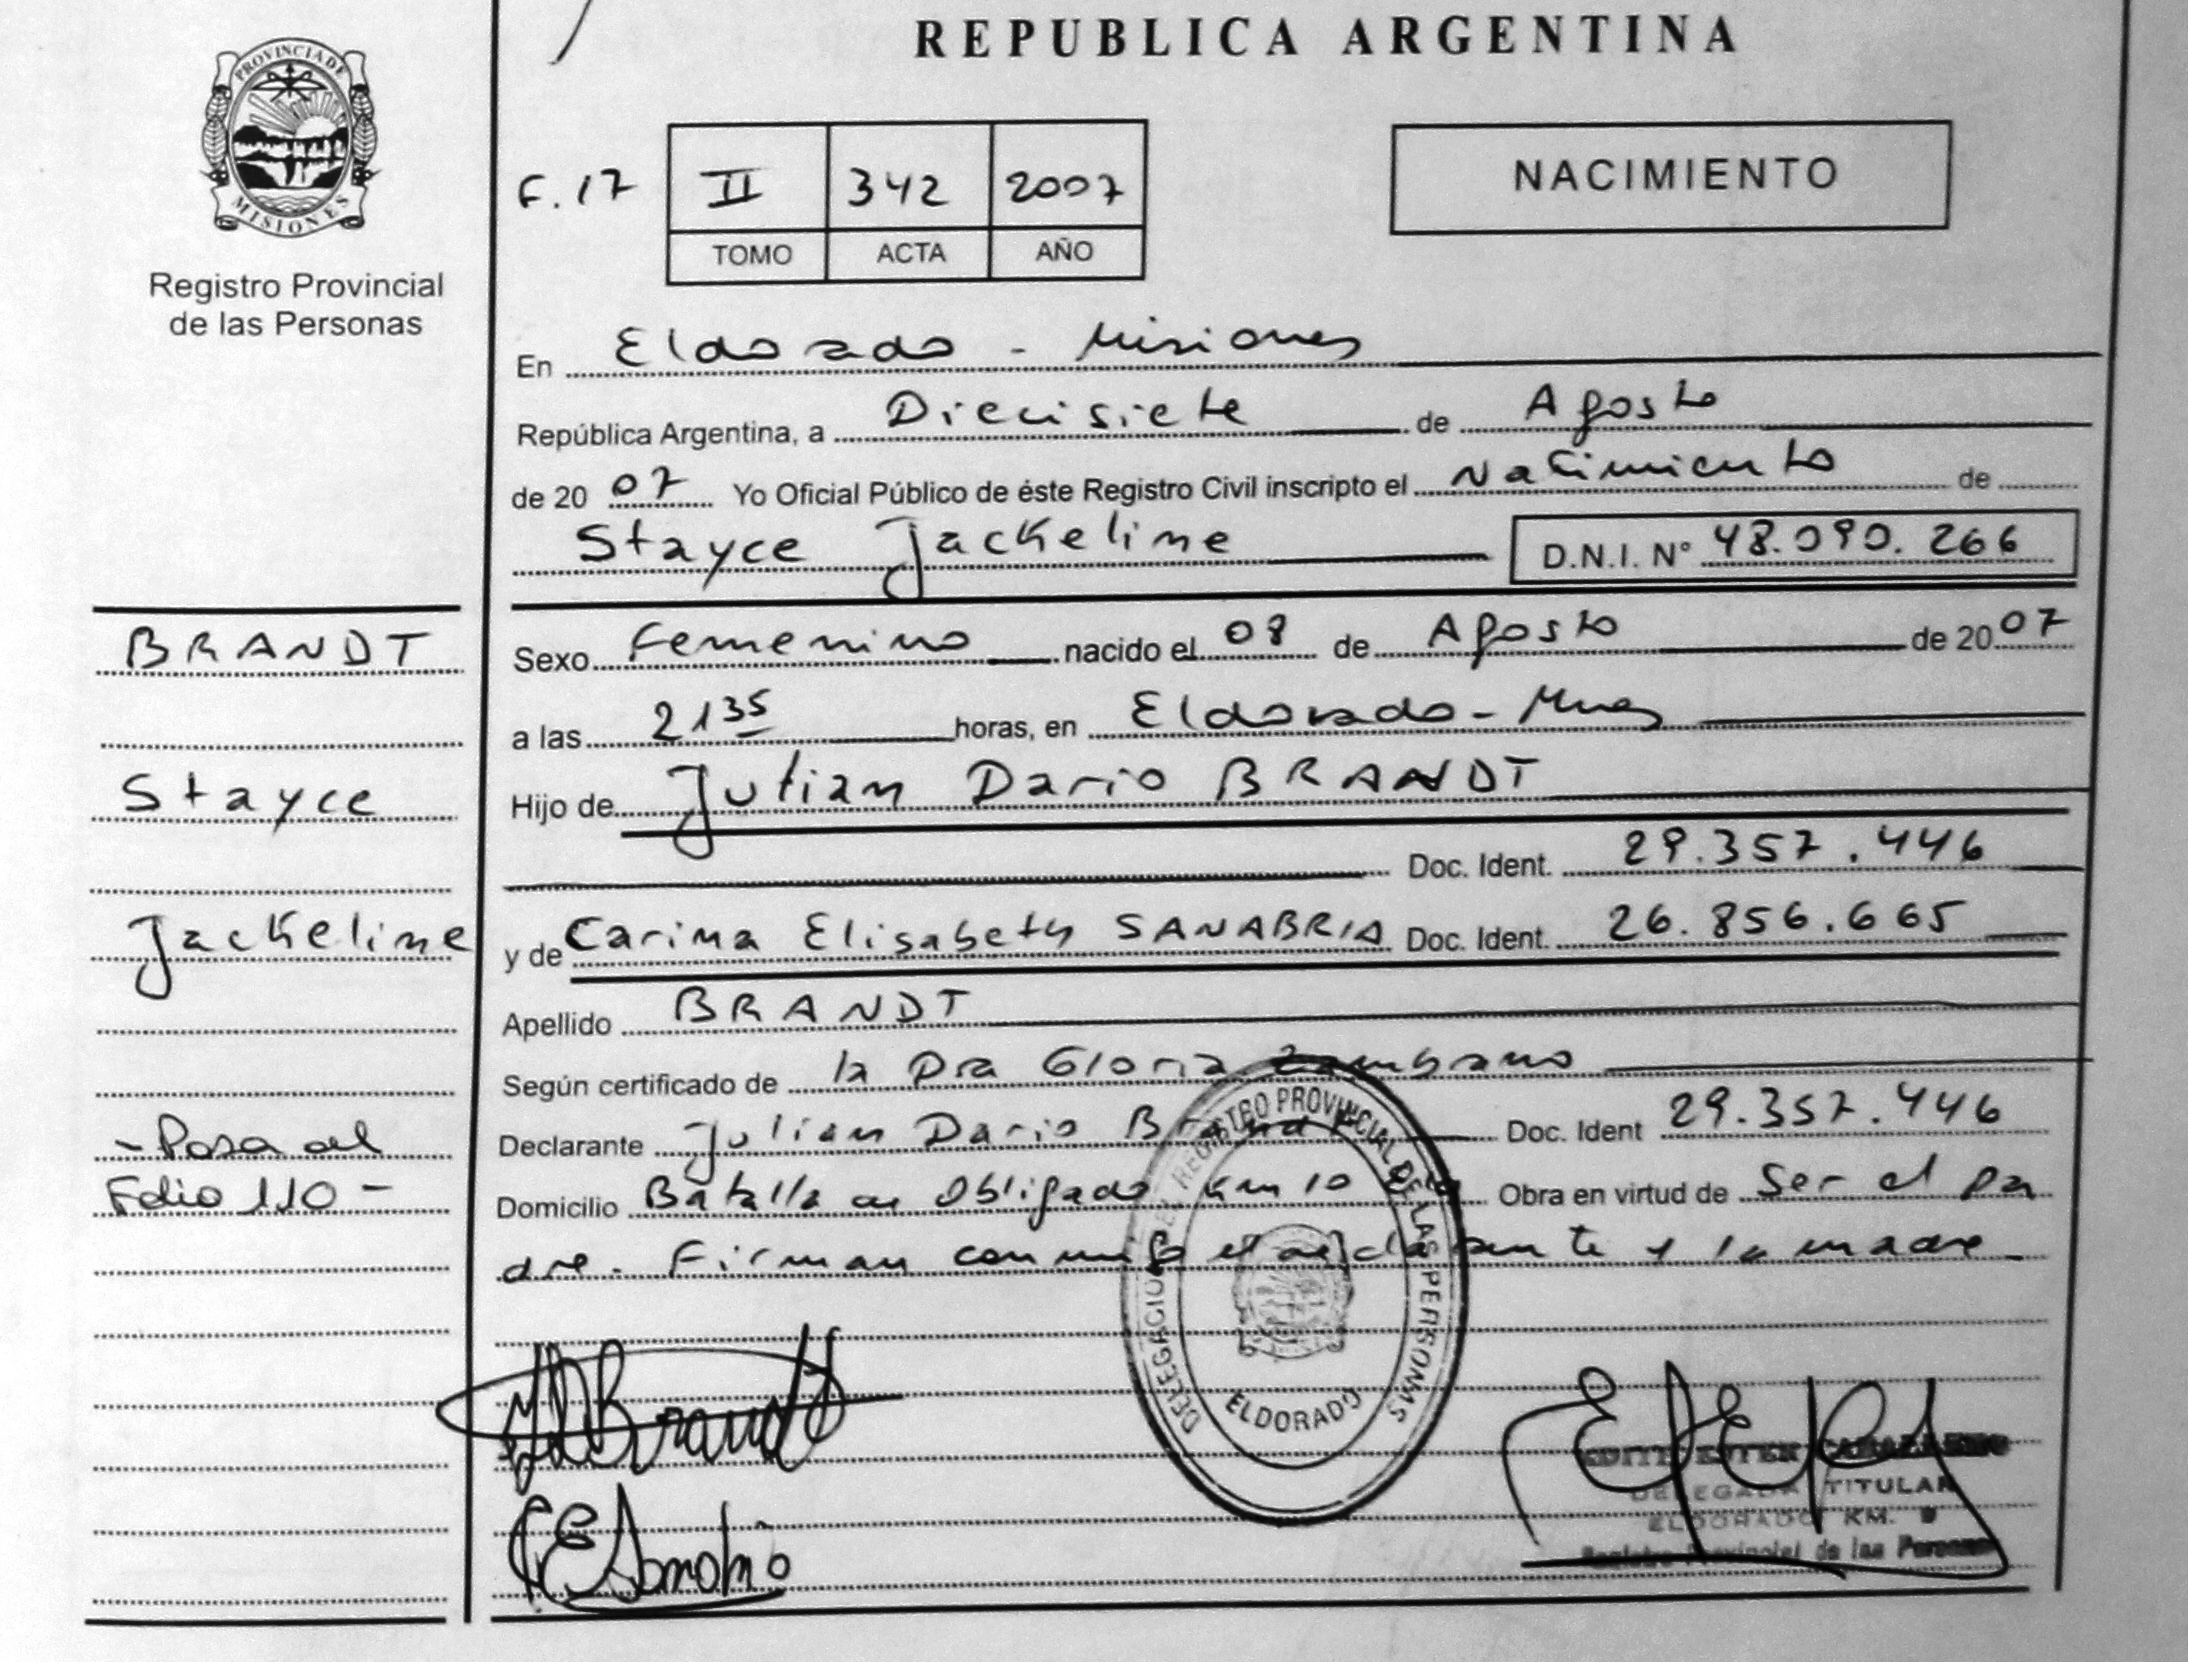 REPUBLICA ARGENTINA
PROVINCIA DE
MISIONES
Registro Provincial
de las Personas
F. 17
II 342 2007
TOMO ACTA AÑO
NACIMIENTO
En Eldorado - Misiones
República Argentina, a Diecisiete de Agosto
de 20 07 Yo Oficial Público de éste Registro Civil inscripto el Nacimiento de
Stayce Jackeline D.N.I. N° 48.090.266
BRANDT
Stayce
Jackeline
- Pasa al
Folio 110 -
Sexo Femenino nacido el 08 de Agosto de 20 07
a las 21 35 horas, en Eldorado - Mnes
Hijo de Julian Dario BRANDT
Doc. Ident. 29.357.446
y de Carina Elisabeth SANABRIA Doc. Ident. 26.856.665
Apellido BRANDT
Según certificado de la Dra Gloria Zambrano
Declarante Julian Dario Brandt Doc. Ident 29.357.446
Domicilio Batalla de Obligado Km 10 Obra en virtud de Ser el pa
dre. Firman conmigo el declarante y la madre
DELEGACION REGISTRO PROVINCIAL DE LAS PERSONAS
ELDORADO
Brandt
DELEGADA TITULAR
ELDORADO KM. 9
Registro Provincial de las Personas